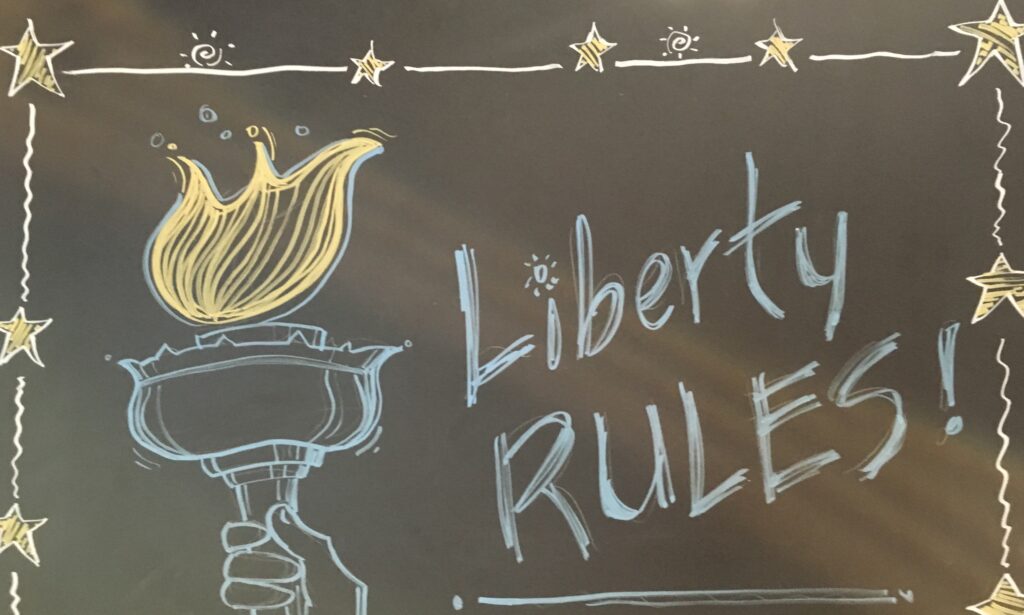 Liberty
RULES!